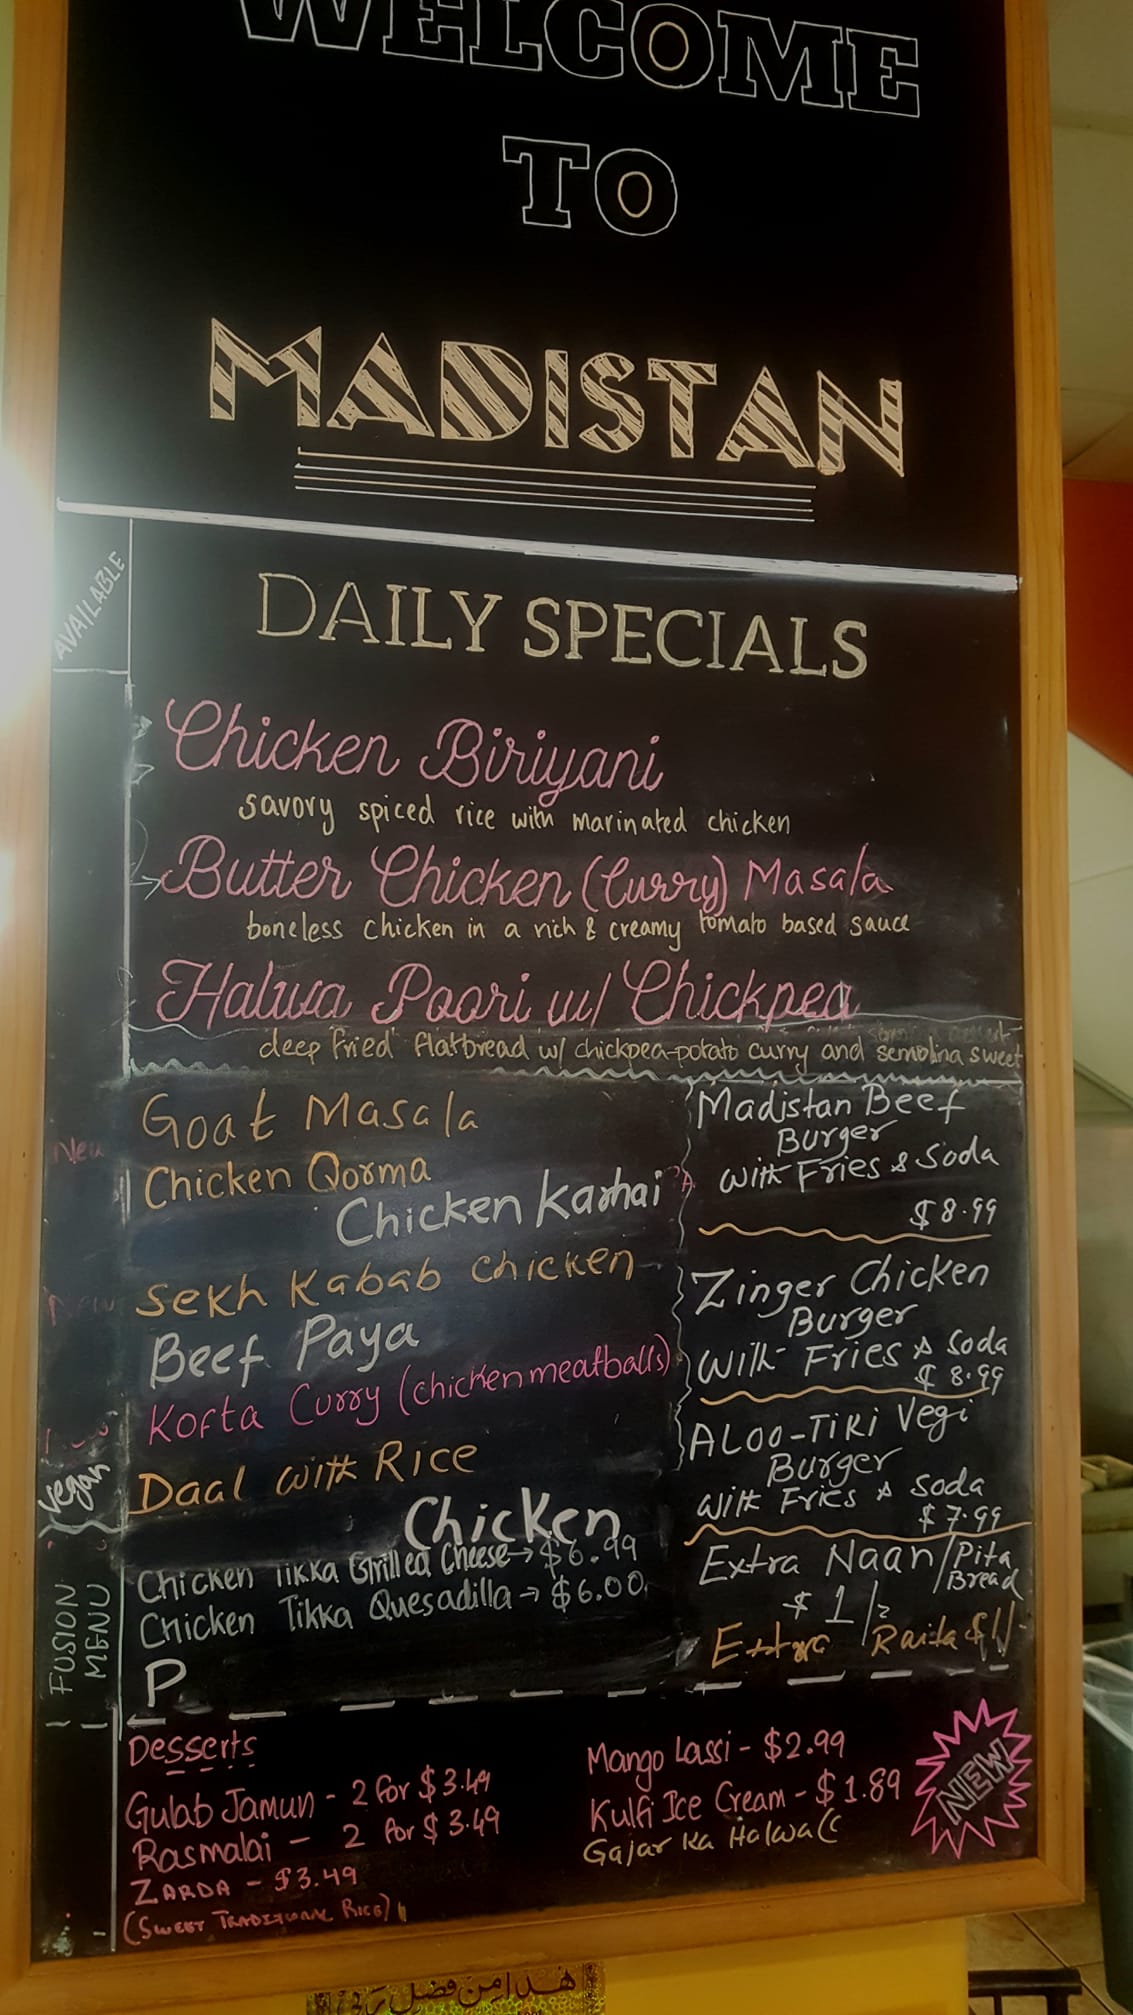 WELCOME
TO
MADISTAN
AVAILABLE
DAILY SPECIALS
Chicken Biriyani
savory spiced rice with marinated chicken
Butter Chicken (Curry) Masala
boneless chicken in a rich & creamy tomato based sauce
Halwa Poori w/ Chickpea
deep fried flatbread w/ chickpea-potato curry and semolina sweet
Goat Masala
New
Chicken Qorma
Chicken Karhai
Sekh Kabab Chicken
New
Beef Paya
Kofta Curry (chicken meatballs)
Vegan
Daal with Rice
Chicken
FUSION
MENU
Chicken Tikka Grilled Cheese → $6.99
Chicken Tikka Quesadilla → $6.00
P
Madistan Beef
Burger
with Fries & Soda
$8.99
Zinger Chicken
Burger
With Fries & Soda
$8.99
ALOO-TiKi Vegi
Burger
with Fries & Soda
$7.99
Extra Naan/Pita
Bread
$1/-
Extra Raita $1/-
Desserts
Gulab Jamun - 2 for $3.49
Rasmalai - 2 for $3.49
ZARDA - $3.49
(SWEET TRADITIONAL RICE)
Mango Lassi - $2.99
Kulfi Ice Cream - $1.89
Gajar Ka Halwa
NEW
هذا من فضل ربي